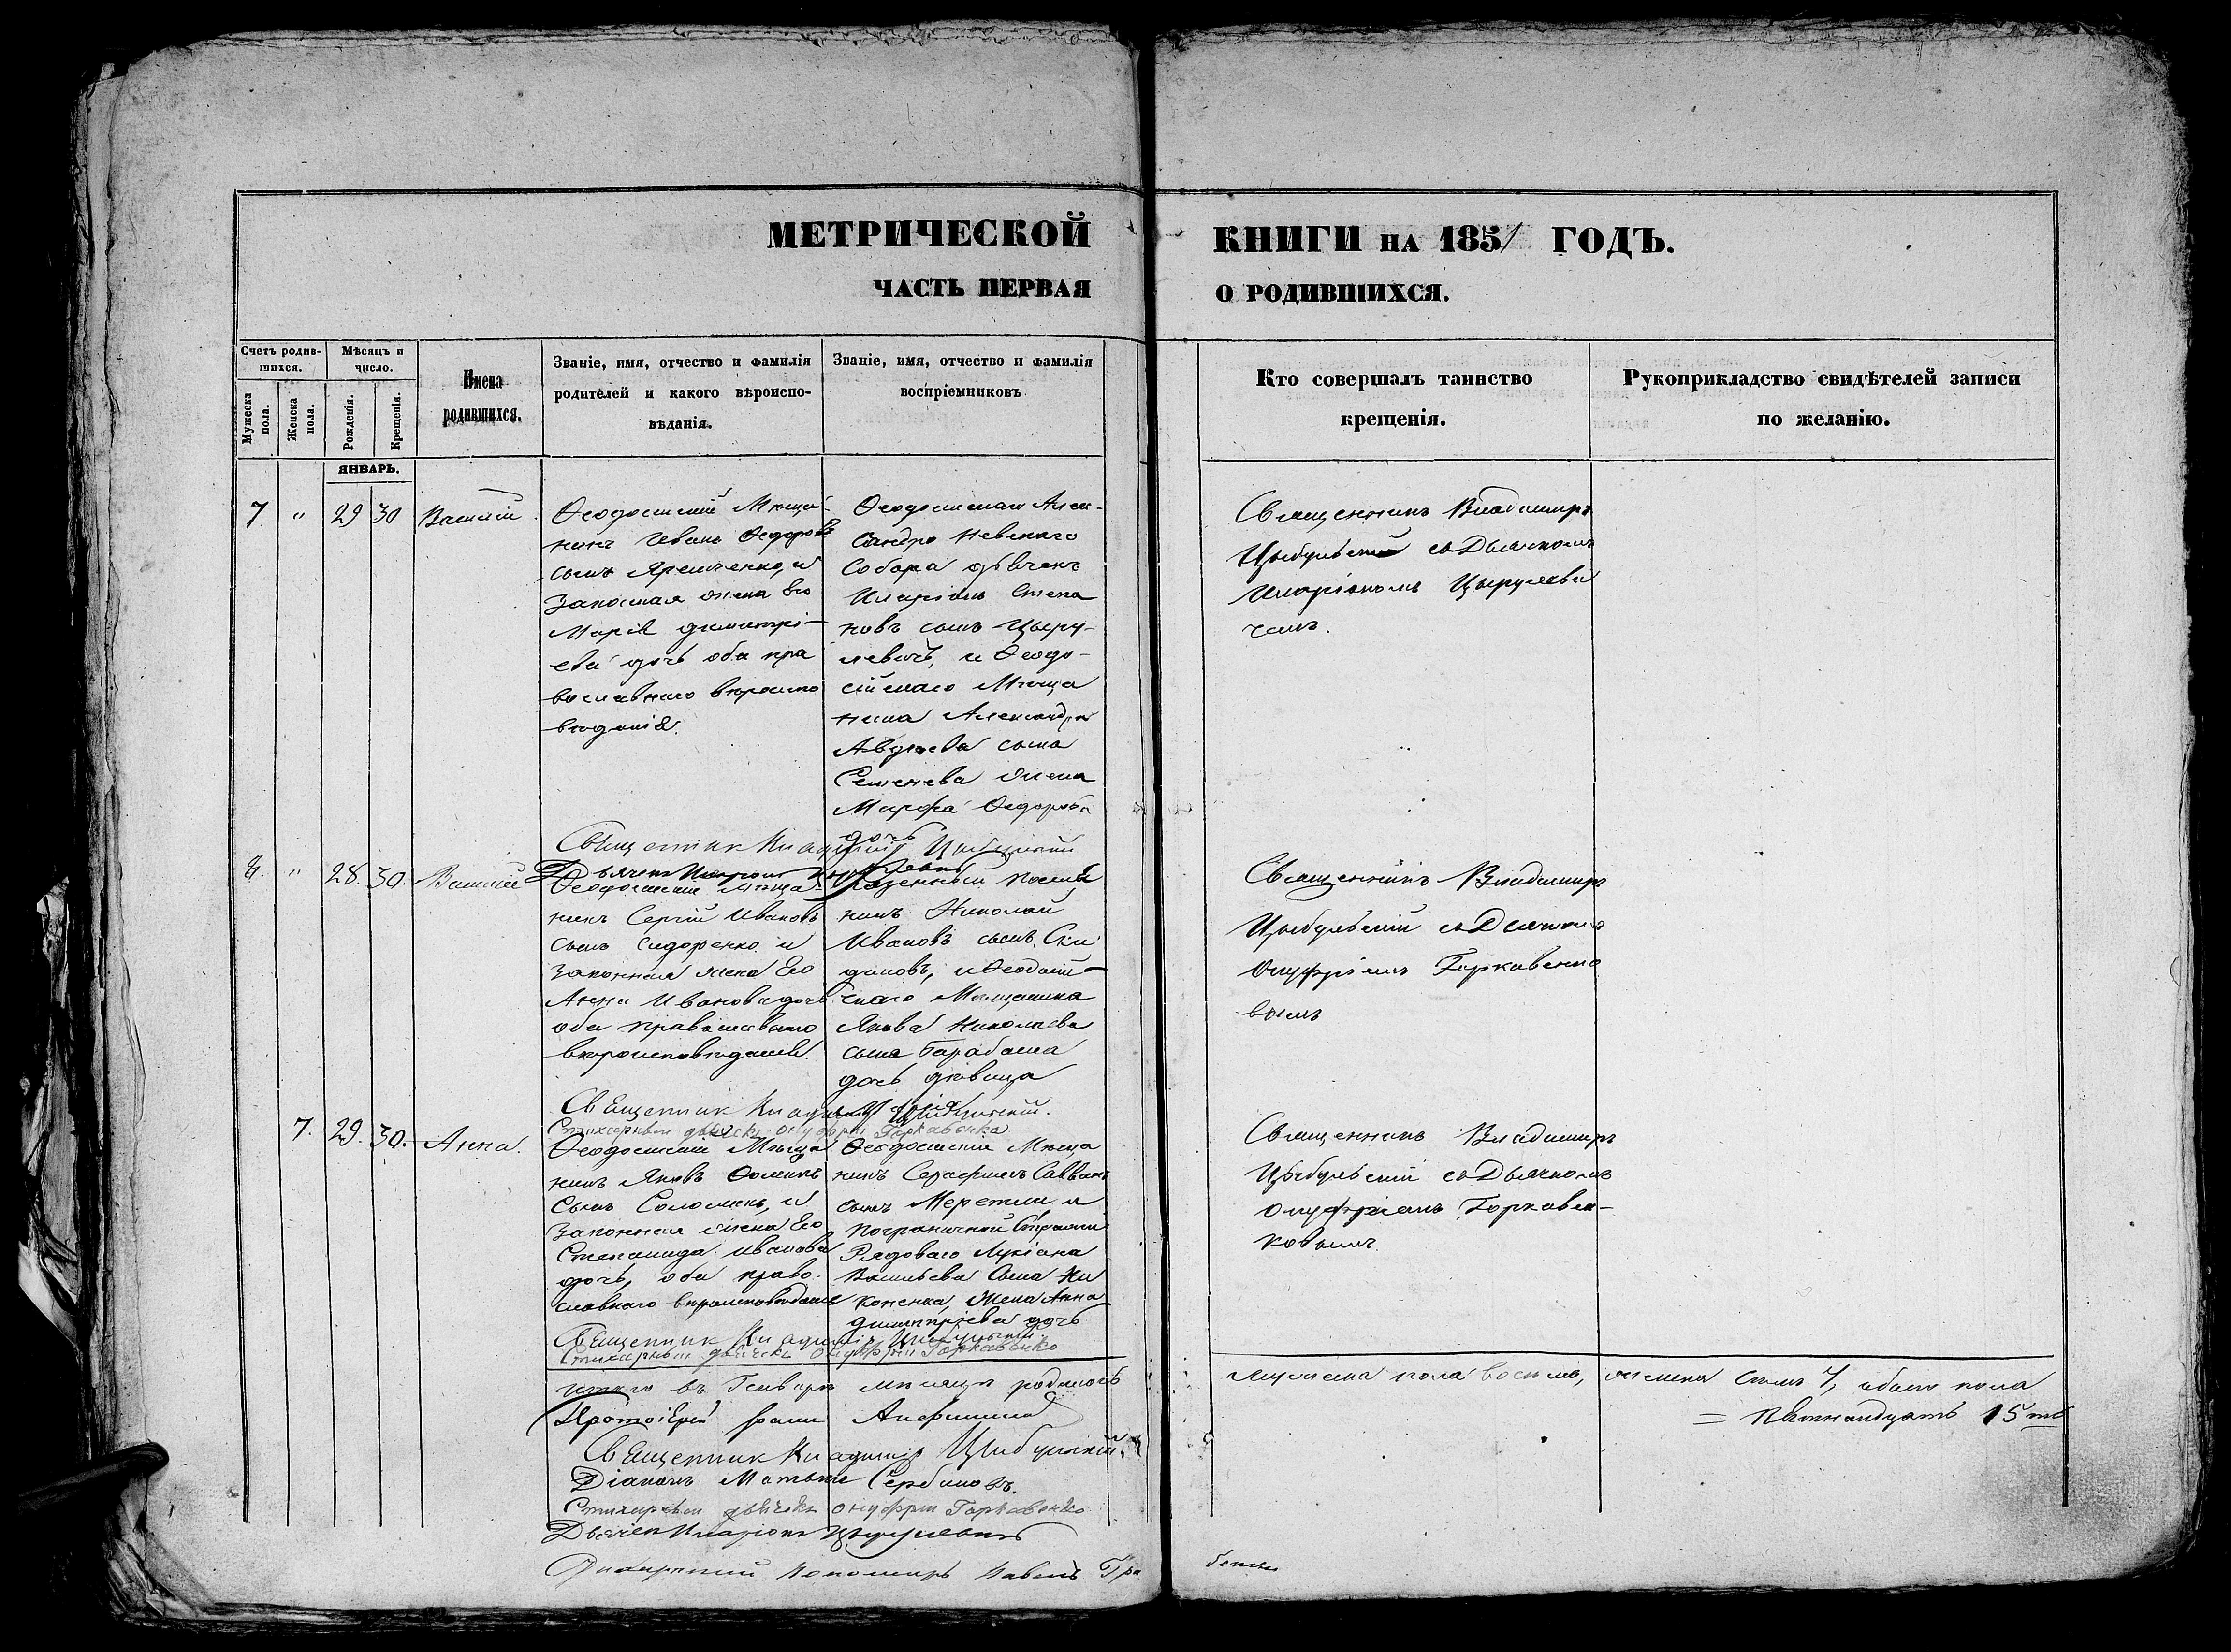 МЕТРИЧЕСКОЙ КНИГИ НА 1851 ГОДЪ.
ЧАСТЬ ПЕРВАЯ О РОДИВШИХСЯ.
Счетъ родившихся.
Мужеска пола.
Женска пола.
Мѣсяцъ и число.
Рожденія.
Крещенія.
Имена родившихся.
Званіе, имя, отчество и фамилія
родителей и какого вѣроиспо-
вѣданія.
Званіе, имя, отчество и фамилія
воспріемниковъ
Кто совершалъ таинство
крещенія.
Рукоприкладство свидѣтелей записи
по желанію.
ЯНВАРЬ.
7 " 29 30 Василій
Ѳеодосійскій Мѣща-
нинъ Иванъ Ѳедоровъ
сынъ Яремченко, и
Законная жена Его
Марія димитрі-
ева дочь оба пра
вославнаго вѣроиспо
вѣданія.
Ѳеодосійскаго Алек-
сандро Невскаго
Собора дьячекъ
Иларіонъ Степа
новъ сынъ Цыру-
левичъ, и Ѳеодо-
сійскаго Мѣща
нина Александра
Авдѣева сына
Семенева жена
Марфа Ѳедорова
дочь
Священникъ Владиміръ
Цыбульскій съ Дьячкомъ
Иларіономъ Цырулеви
чемъ.
Священникъ Владиміръ Цыбульскій
Дьячекъ Иларіонъ Цырулевичъ
8. " 28. 30. Василій
Ѳеодосійскій Мѣща-
нинъ Сергій Ивановъ
сынъ Сидоренко и
законная жена Его
Анна Иванова дочь
оба православнаго
вѣроисповѣданія.
нинъ Николай
Ивановъ сынъ
и Ѳеодосій-
скаго Мѣщанина
Якова Николаева
сына Барабаша
дочь дѣвица
Марія
Священникъ Владиміръ
Цыбульскій съ Дьячкомъ
Онуфріемъ Горкавенко
вымъ
Священникъ Владиміръ Цыбульскій.
Стихарный дьячекъ Онуфрій Горкавенко
7. 29. 30. Анна.
Ѳеодосійскій Мѣща
нинъ Яковъ Ѳоминъ
Сынъ и
Законная жена Его
Степанида Иванова
дочь, оба право-
славнаго вѣроисповѣданія
Ѳеодосійскій Мѣща
нинъ Серафимъ Саввинъ
сынъ и
пограничной Стражи
Рядоваго Лукіана
Васильева сына Ни
коненка, жена Анна
димитріева дочь
Священникъ Владиміръ
Цыбульскій съ Дьячкомъ
Онуфріемъ Горкавен-
ковымъ.
Священникъ Владиміръ Цыбульскій.
Стихарный дьячекъ Онуфрій Горкавенко
Итого въ Генварѣ мѣсяцѣ родилось мужеска пола восемь, женска семь 7, обоего пола
= пятнандцать 15ть
Протоіерей
Священникъ Владиміръ Цыбульскій.
Діаконъ Матвѣй Сербиновъ.
Стихарный дьячекъ Онуфрій Горкавенко
Дьячекъ Иларіонъ Цырулевичъ
Стихарный Пономарь Павелъ